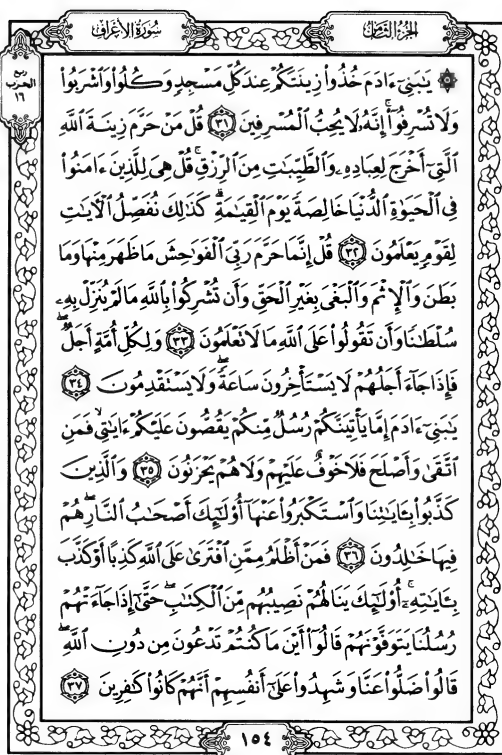 سُورَةُ الأَعۡرَافِ
الجُزۡءُ الثَّامِنُ
ربع
الحزب
١٦
۞ يَٰبَنِيٓ ءَادَمَ خُذُواْ زِينَتَكُمۡ عِندَ كُلِّ مَسۡجِدٖ وَكُلُواْ وَٱشۡرَبُواْ
وَلَا تُسۡرِفُوٓاْۚ إِنَّهُۥ لَا يُحِبُّ ٱلۡمُسۡرِفِينَ ٣١ قُلۡ مَنۡ حَرَّمَ زِينَةَ ٱللَّهِ
ٱلَّتِيٓ أَخۡرَجَ لِعِبَادِهِۦ وَٱلطَّيِّبَٰتِ مِنَ ٱلرِّزۡقِۚ قُلۡ هِيَ لِلَّذِينَ ءَامَنُواْ
فِي ٱلۡحَيَوٰةِ ٱلدُّنۡيَا خَالِصَةٗ يَوۡمَ ٱلۡقِيَٰمَةِۗ كَذَٰلِكَ نُفَصِّلُ ٱلۡأٓيَٰتِ
لِقَوۡمٖ يَعۡلَمُونَ ٣٢ قُلۡ إِنَّمَا حَرَّمَ رَبِّيَ ٱلۡفَوَٰحِشَ مَا ظَهَرَ مِنۡهَا وَمَا
بَطَنَ وَٱلۡإِثۡمَ وَٱلۡبَغۡيَ بِغَيۡرِ ٱلۡحَقِّ وَأَن تُشۡرِكُواْ بِٱللَّهِ مَا لَمۡ يُنَزِّلۡ بِهِۦ
سُلۡطَٰنٗا وَأَن تَقُولُواْ عَلَى ٱللَّهِ مَا لَا تَعۡلَمُونَ ٣٣ وَلِكُلِّ أُمَّةٍ أَجَلٞۖ
فَإِذَا جَآءَ أَجَلُهُمۡ لَا يَسۡتَأۡخِرُونَ سَاعَةٗ وَلَا يَسۡتَقۡدِمُونَ ٣٤
يَٰبَنِيٓ ءَادَمَ إِمَّا يَأۡتِيَنَّكُمۡ رُسُلٞ مِّنكُمۡ يَقُصُّونَ عَلَيۡكُمۡ ءَايَٰتِي فَمَنِ
ٱتَّقَىٰ وَأَصۡلَحَ فَلَا خَوۡفٌ عَلَيۡهِمۡ وَلَا هُمۡ يَحۡزَنُونَ ٣٥ وَٱلَّذِينَ
كَذَّبُواْ بِـَٔايَٰتِنَا وَٱسۡتَكۡبَرُواْ عَنۡهَآ أُوْلَٰٓئِكَ أَصۡحَٰبُ ٱلنَّارِۖ هُمۡ
فِيهَا خَٰلِدُونَ ٣٦ فَمَنۡ أَظۡلَمُ مِمَّنِ ٱفۡتَرَىٰ عَلَى ٱللَّهِ كَذِبًا أَوۡ كَذَّبَ
بِـَٔايَٰتِهِۦٓۚ أُوْلَٰٓئِكَ يَنَالُهُمۡ نَصِيبُهُم مِّنَ ٱلۡكِتَٰبِۖ حَتَّىٰٓ إِذَا جَآءَتۡهُمۡ
رُسُلُنَا يَتَوَفَّوۡنَهُمۡ قَالُوٓاْ أَيۡنَ مَا كُنتُمۡ تَدۡعُونَ مِن دُونِ ٱللَّهِۖ
قَالُواْ ضَلُّواْ عَنَّا وَشَهِدُواْ عَلَىٰٓ أَنفُسِهِمۡ أَنَّهُمۡ كَانُواْ كَٰفِرِينَ ٣٧
١٥٤